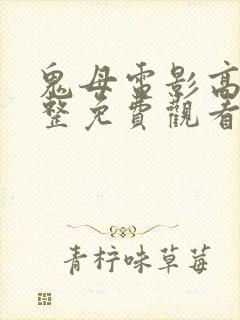 鬼母電影高
整免費觀看
青柠味草莓